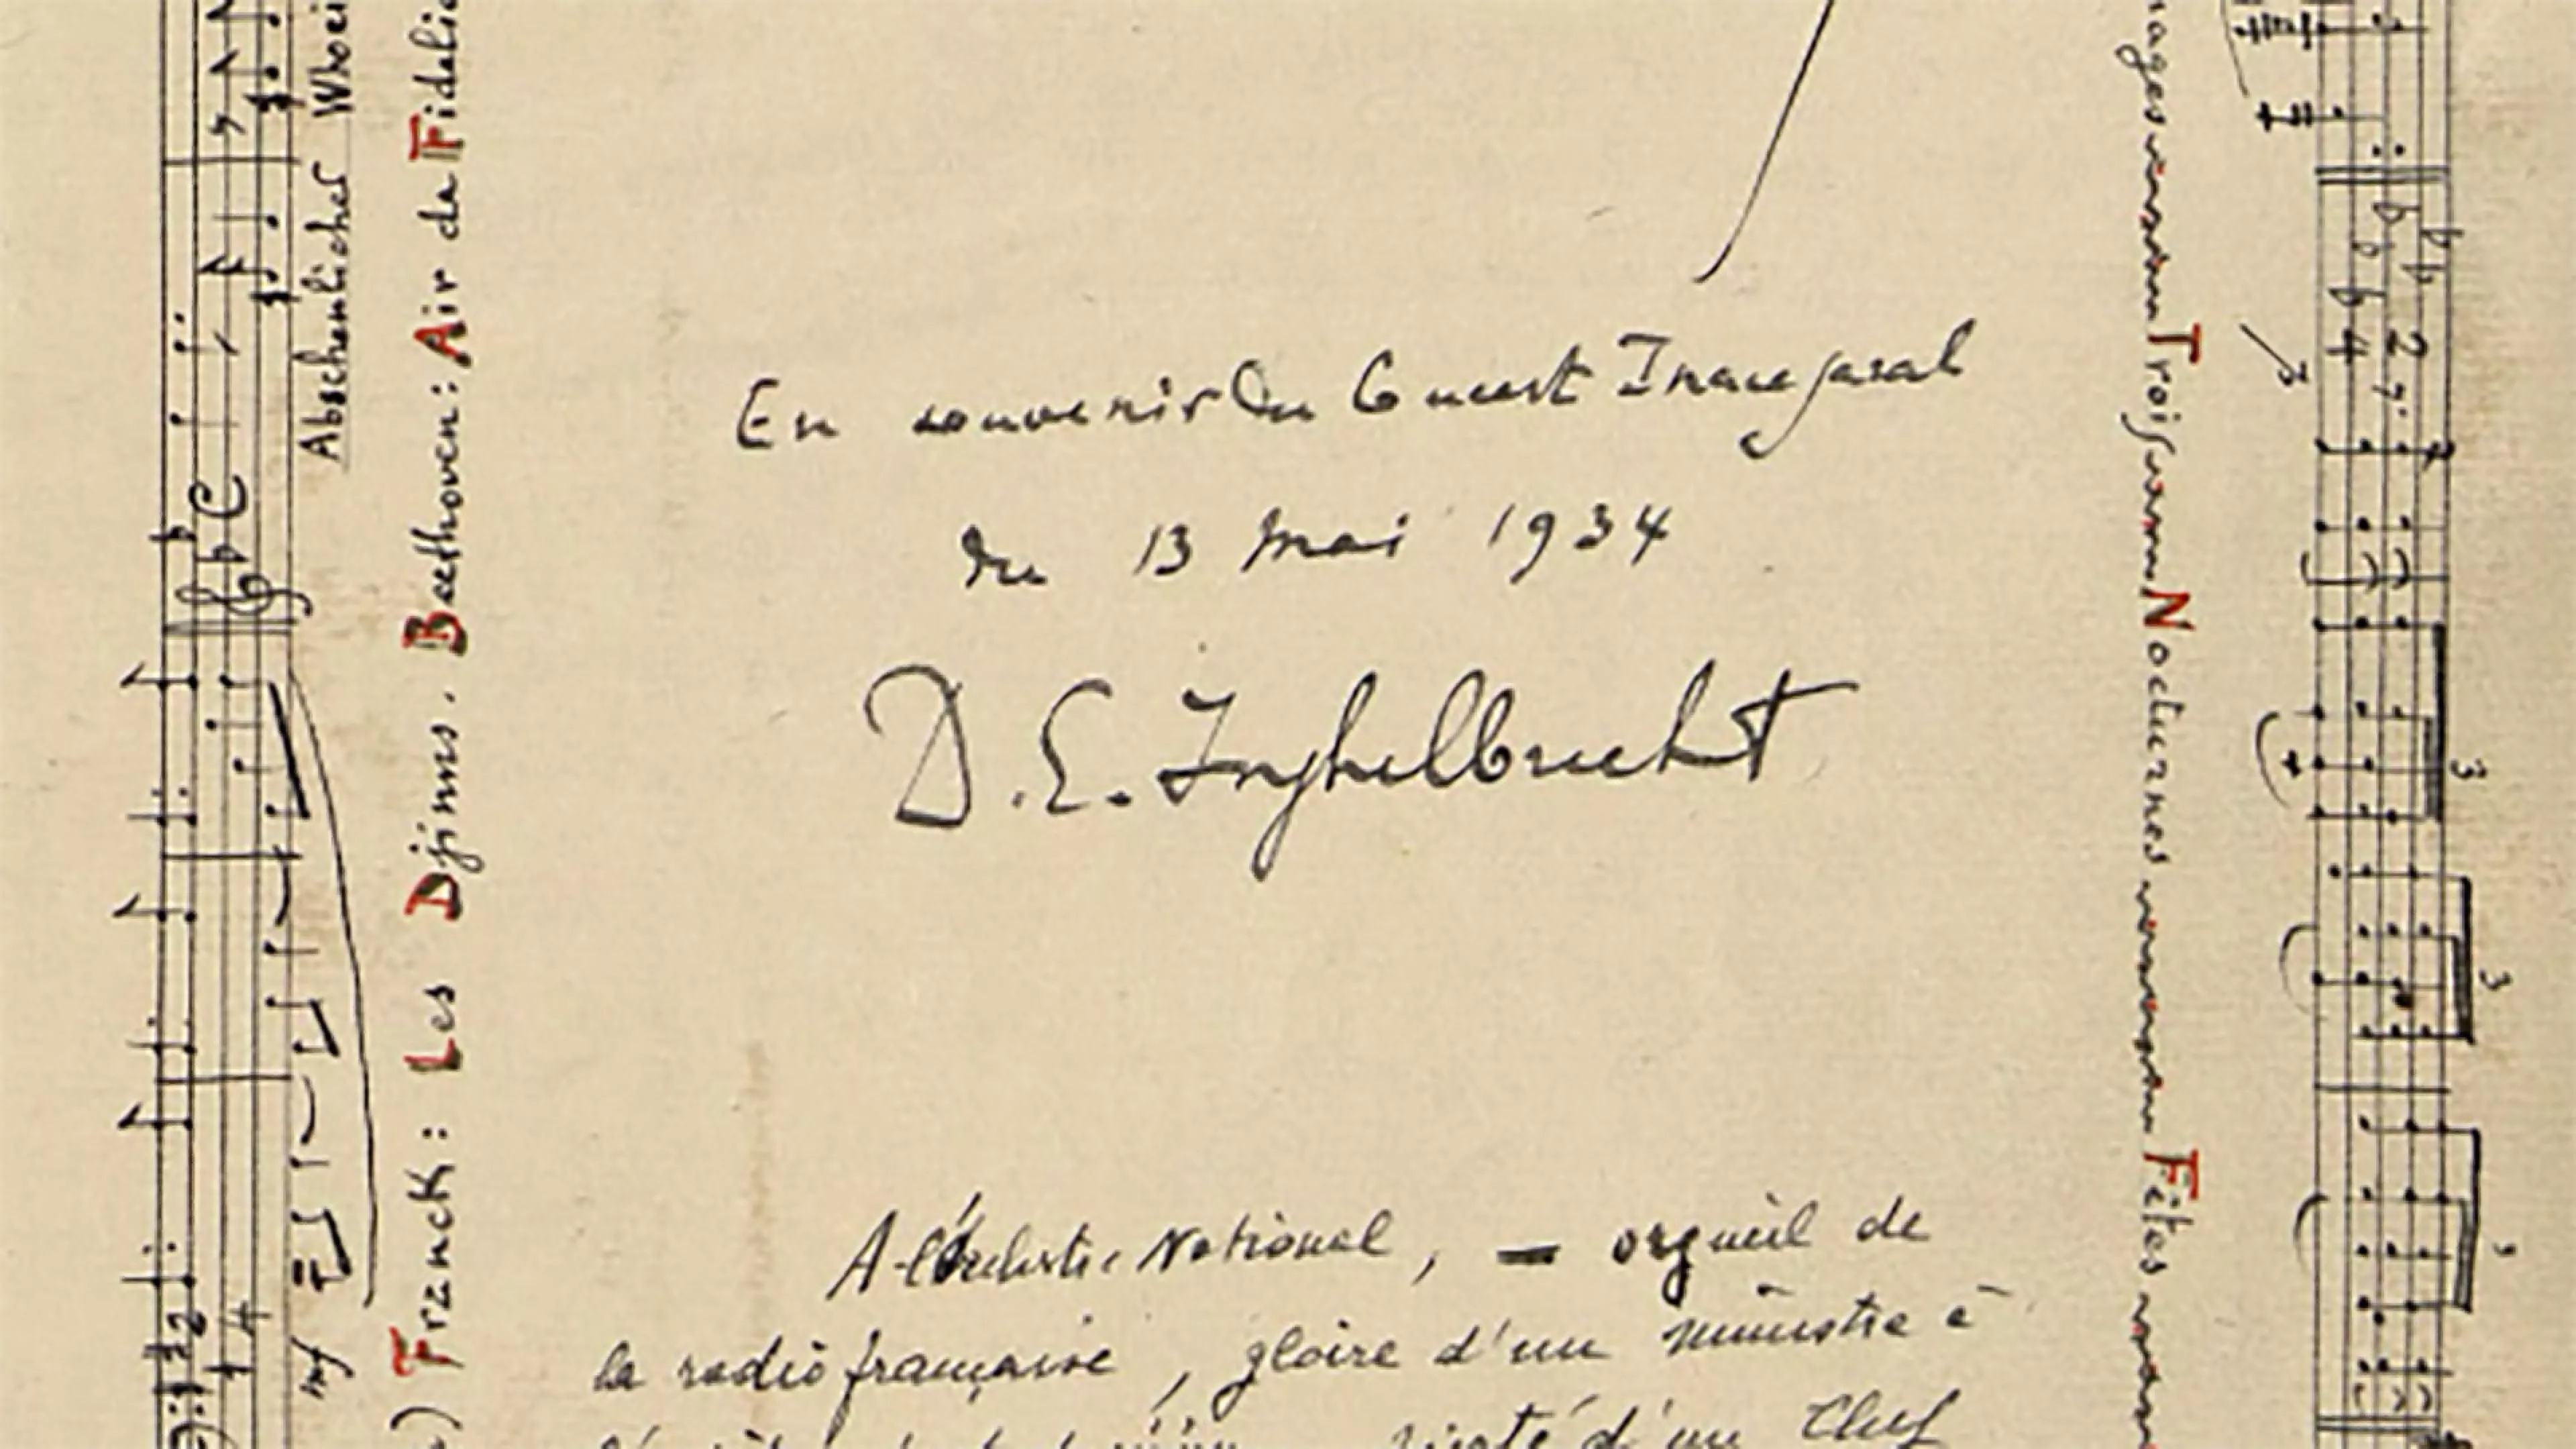 En souvenir du Concert Inaugural
du 13 Mai 1934
D.E. Inghelbrecht
A l'Orchestre National, — orgueil de
la radio française, gloire d'un ministre à
d'un Chef
Franck: Les Djinns. Beethoven: Air de Fidelio
Abscheulicher Wo
mf
ages Trois Nocturnes Fêtes
3
3
3